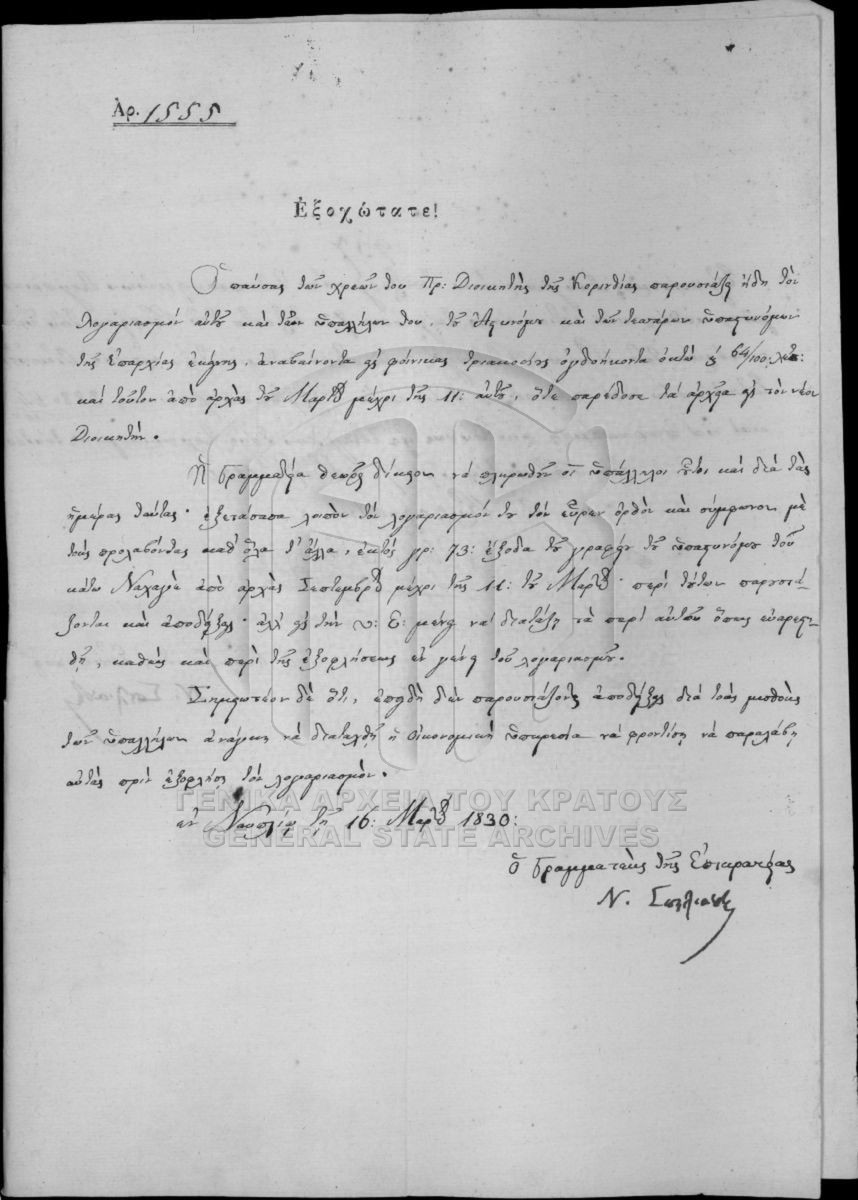 Ἀρ. 1555
Ἐξοχώτατε!
Ὁ παύσας τῶν χρεῶν του Πρ: Διοικητὴς τῆς Κορινθίας παρουσιάζει ἤδη τὸν
λογαριασμόν αὑτοῦ καὶ τῶν ὑπαλλήλων του, τοῦ Ἀστυνόμου καὶ τῶν τεσσάρων ὑπαστυνόμων
τῆς ἐπαρχίας ἐκείνης, ἀναβαίνοντα εἰς φοίνικας τριακοσίους ὀγδοήκοντα ὀκτὼ 64/100:
καὶ τοῦτον ἀπὸ ἀρχὰς τοῦ Μαρτίου μέχρι τῆς 11: αὐτοῦ, ὅτε παρέδοσε τὰ ἀρχεῖα εἰς τὸν νέον
Διοικητήν.
Ἡ Γραμματεία θεωρεῖ δίκαιον νὰ πληρωθοῦν οἱ ὑπάλληλοι οὗτοι καὶ διὰ τὰς
ἡμέρας ταύτας· ἐξετάσασα λοιπὸν τὸν λογαριασμόν του τὸν εὗρεν ὀρθὸν καὶ σύμφωνον μὲ
τοὺς προλαβόντας καθ' ὅλα τ' ἄλλα, ἐκτὸς γρ: 73: ἔξοδα τοῦ γραφείου τοῦ ὑπαστυνόμου τοῦ
κάτω Ναχαγιὲ ἀπὸ ἀρχὰς Σεπτεμβρίου μέχρι τῆς 11: τοῦ Μαρτίου· περὶ τούτων παρουσιά-
ζονται καὶ ἀποδείξεις· ἀλλ' εἰς τὴν υ: Ε: μένει νὰ διατάξῃ τὰ περὶ αὐτῶν ὅπως εὐαρεστη-
θῇ, καθὼς καὶ περὶ τῆς ἐξοφλήσεως ἐν γένει τοῦ λογαριασμοῦ.
Σημειωτέον δὲ ὅτι, ἐπειδὴ δὲν παρουσιάζονται ἀποδείξεις διὰ τοὺς μισθοὺς
τῶν ὑπαλλήλων ἀνάγκη νὰ διαταχθῇ ἡ Οἰκονομικὴ ὑπηρεσία νὰ φροντίσῃ νὰ παραλάβῃ
αὐτὰς πρὶν ἐξοφλήσῃ τὸν λογαριασμόν.
ἐν Ναυπλίῳ τῇ 16: Μαρτίου 1830:
ὁ Γραμματεὺς τῆς Ἐπικρατείας
Ν. Σπηλιάδης
ΓΕΝΙΚΑ ΑΡΧΕΙΑ ΤΟΥ ΚΡΑΤΟΥΣ
GENERAL STATE ARCHIVES